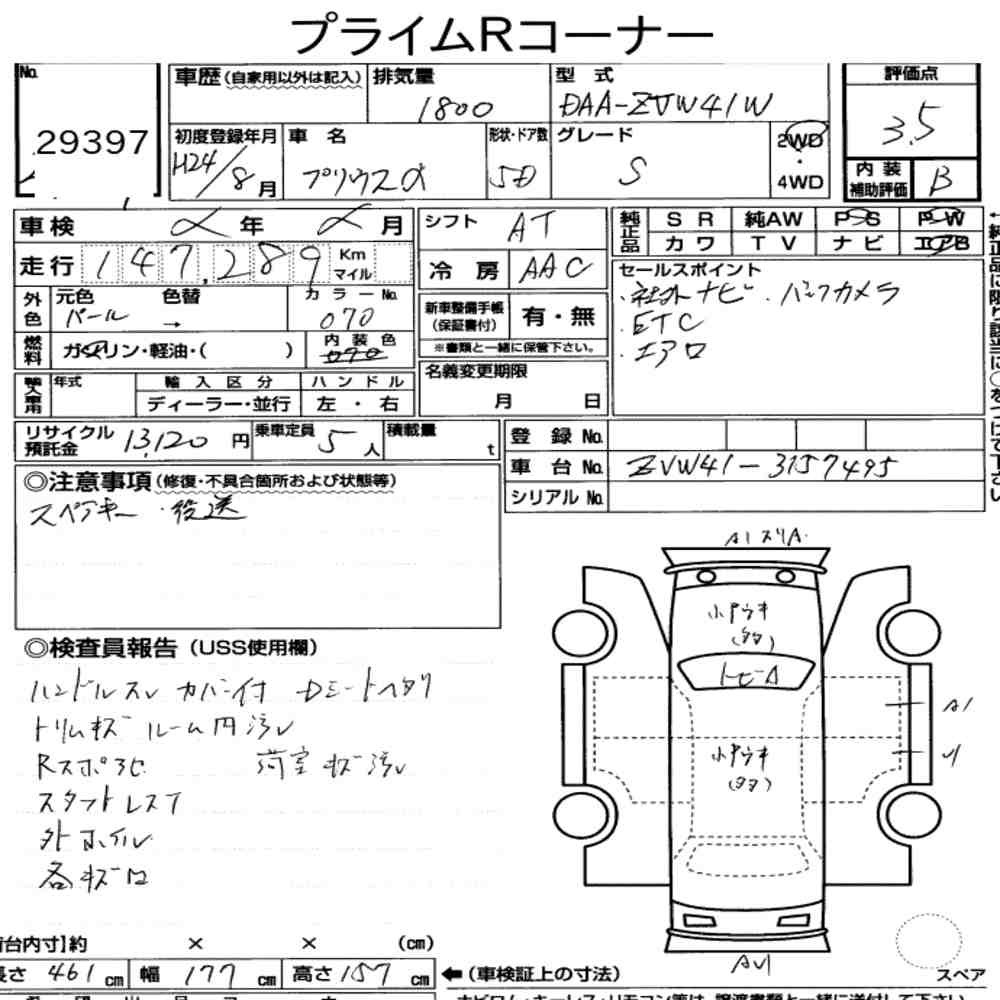 プライムRコーナー
No.
29397
車歴(自家用以外は記入)
排気量
1800
型式
DAA-ZVW41W
評価点
3.5
初度登録年月
H24/8月
車名
プリウスα
形状・ドア数
5D
グレード
S
2WD
・
4WD
内装
補助評価
B
車検 〆年 〆月
シフト AT
純正品
SR 純AW PS PW
カワ TV ナビ エアB
走行 147,289 Km
マイル
冷房 AAC
セールスポイント
・社外ナビ ・バックカメラ
・ETC
・エアロ
外色
元色 色替
パール →
カラーNo.
070
新車整備手帳
(保証書付)
有・無
※書類と一緒に保管下さい。
燃料
ガソリン・軽油・( )
内装色
名義変更期限
月 日
輸入車用
年式
輸入区分
ディーラー・並行
ハンドル
左・右
リサイクル
預託金
13,120円
乗車定員
5人
積載量
t
登録No.
車台No. ZVW41-3157495
シリアルNo.
◎注意事項(修復・不具合箇所および状態等)
スペアキー ・後送
◎検査員報告(USS使用欄)
ハンドルスレ カバー付 Dシートヘタリ
トリムキズ ルーム内汚レ
荷室キズ汚レ
外ホイル
各キズ凹
A1 スリA.
小デウキ
A1
小デウキ
スペア
(cm)
長さ 461cm 幅 177cm 高さ 157cm
(車検証上の寸法)